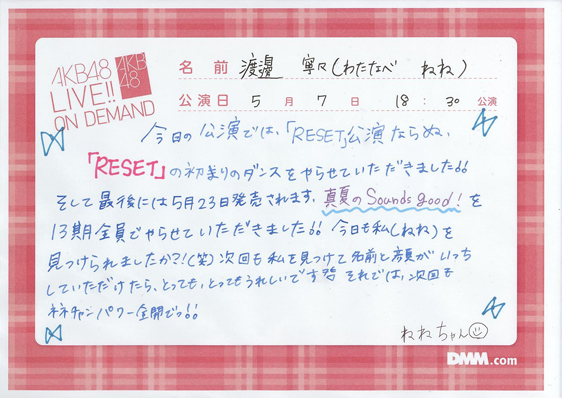 AKB48
LIVE!!
ON DEMAND
AKB
48
名前 渡邊 寧々(わたなべ ねね)
公演日 5月7日 18:30 公演
今日の公演では、「RESET」公演ならぬ、
「RESET」の初まりのダンスをやらせていただきました!!
そして最後には5月23日発売されます、真夏のSounds good!を
13期全員でやらせていただきました!! 今日も私(ねね)を
見つけられましたか?!(笑)次回も私を見つけて名前と顔がいっち
していただけたら、とっても、とってもうれしいです それでは、次回も
ネネチャンパワー全開でっ!!
ねねちゃん
DMM.com